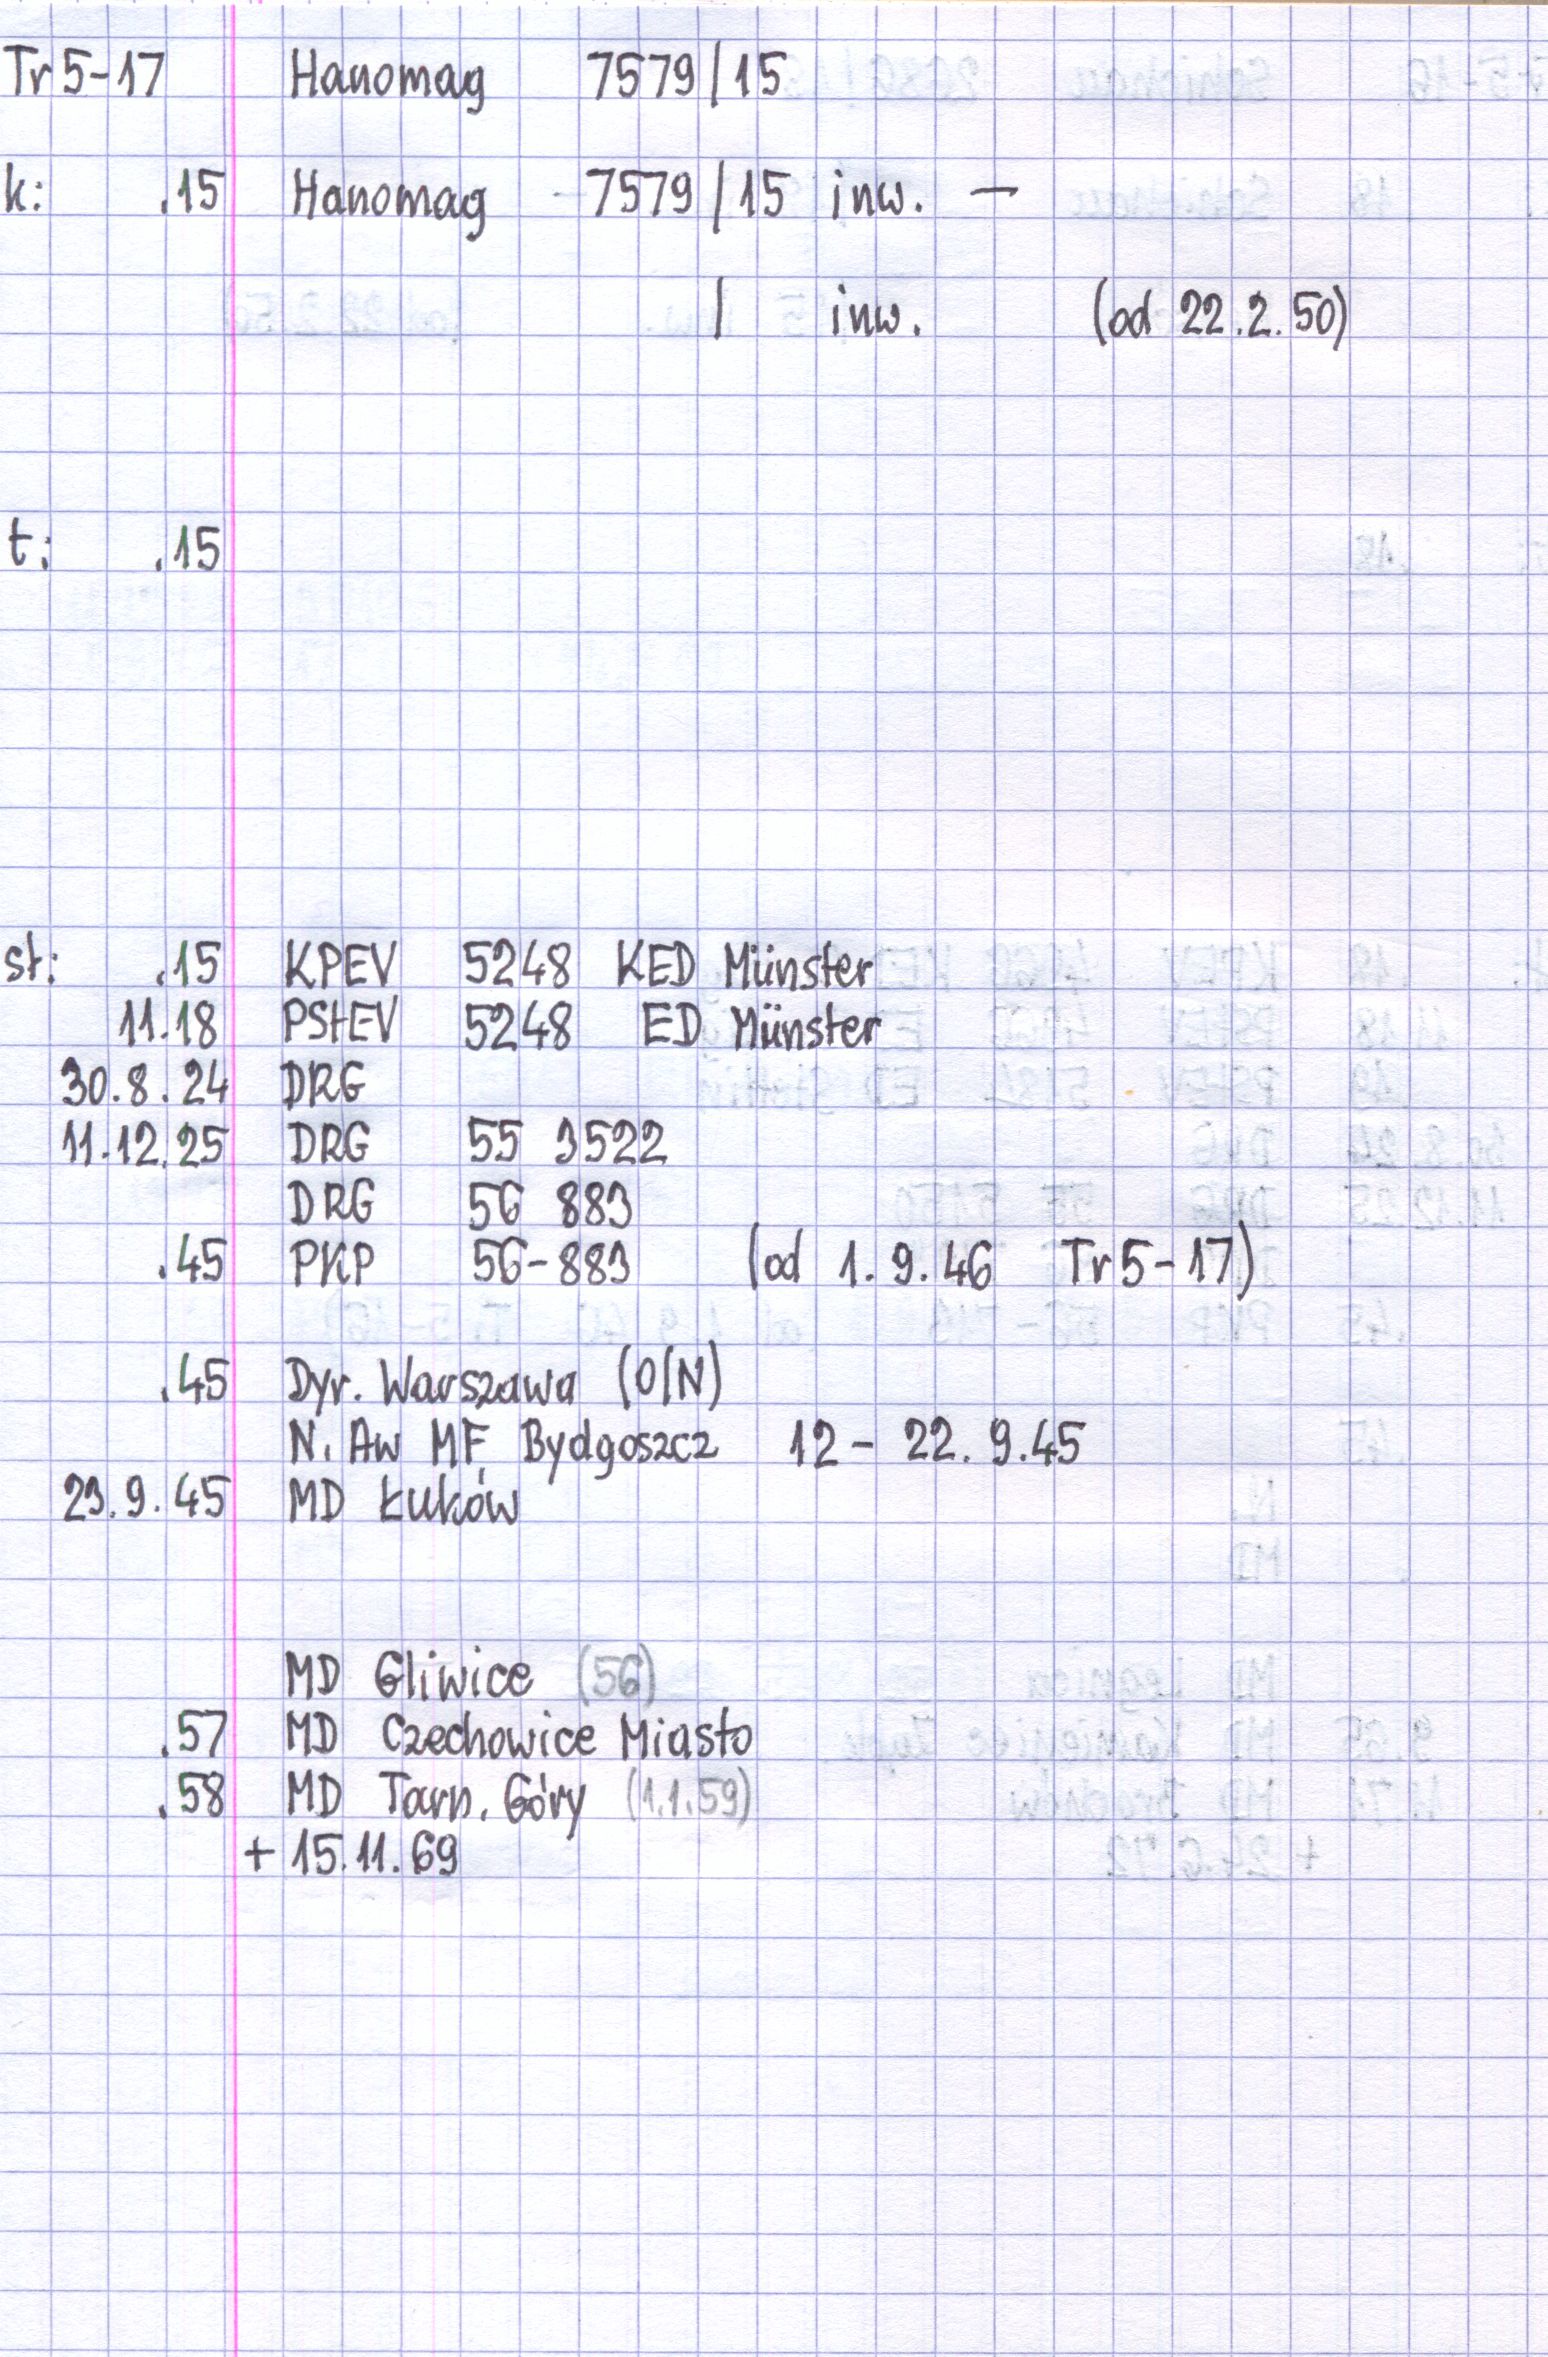 Tr 5-17 Hanomag 7579/15
k: .15 Hanomag 7579/15 inw. -
/ inw. (od 22.2.50)
t: .15
st: .15 KPEV 5248 KED Münster
11.18 PStEV 5248 ED Münster
30.8.24 DRG
11.12.25 DRG 55 3522
DRG 56 883
.45 PKP 56-883 (od 1.9.46 Tr 5-17)
.45 Dyr. Warszawa (O/N)
N. Aw MF. Bydgoszcz 12-22.9.45
23.9.45 MD Łuków
MD Gliwice (56)
.57 MD Czechowice Miasto
.58 MD Tarn. Góry (1.1.59)
+ 15.11.69